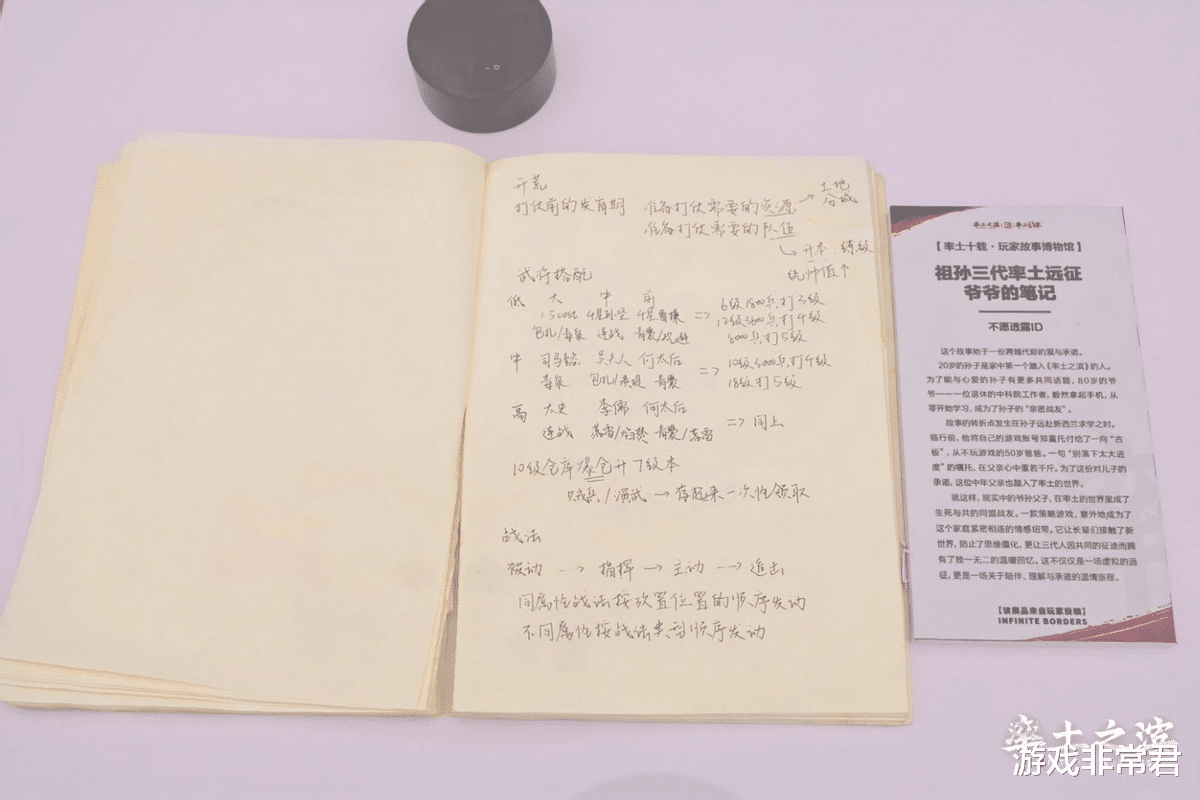 开荒
打仗前的发育期 准备打仗需要的资源 → 土地 分城
准备打仗需要的队伍
↳ 升本、练级
统帅值↑
武将搭配
低 大 中 前
1.5cost 4星孙坚 4星曹操 => 6级1800兵打3级
12级3600兵打4级
连战 8000兵打5级
中 司马懿 吴夫人 何太后 => 10级3000兵打4级
18级打5级
高 太史 李儒 何太后
连战 => 同上
10级仓库爆仓升7级本
贼兵/演武 → 存起来一次性领取
战法
被动 → 指挥 → 主动 → 追击
同属性战法按放置位置的顺序发动
不同属性按战法类型顺序发动
率土之滨
【率土十载·玩家故事博物馆】
祖孙三代率土远征
爷爷的笔记
不愿透露ID
这个故事始于一份跨越代际的爱与承诺。
20岁的孙子是家中第一个踏入《率土之滨》的人。
为了能与心爱的孙子有更多共同话题，80岁的爷
爷——一位退休的中科院工作者，毅然拿起手机，从
零开始学习，成为了孙子的“亲密战友”。
故事的转折点发生在孙子远赴新西兰求学之时。
临行前，他将自己的游戏账号郑重托付给了一向“古
板”、从不玩游戏的50岁爸爸。一句“别落下太大进
度”的嘱托，在父亲心中重若千斤。为了这份对儿子的
承诺，这位中年父亲也踏入了率土的世界。
就这样，现实中的爷孙父子，在率土的世界里成了
生死与共的同盟战友。一款策略游戏，意外地成为了
这个家庭紧密相连的情感纽带。它让长辈们接触了新
世界，防止了思维僵化，更让三代人因共同的征途而拥
有了独一无二的温暖回忆。这不仅仅是一场虚拟的远
征，更是一场关于陪伴、理解与承诺的温情旅程。
【该展品来自玩家投稿】
INFINITE BORDERS
率土之滨
游戏非常君